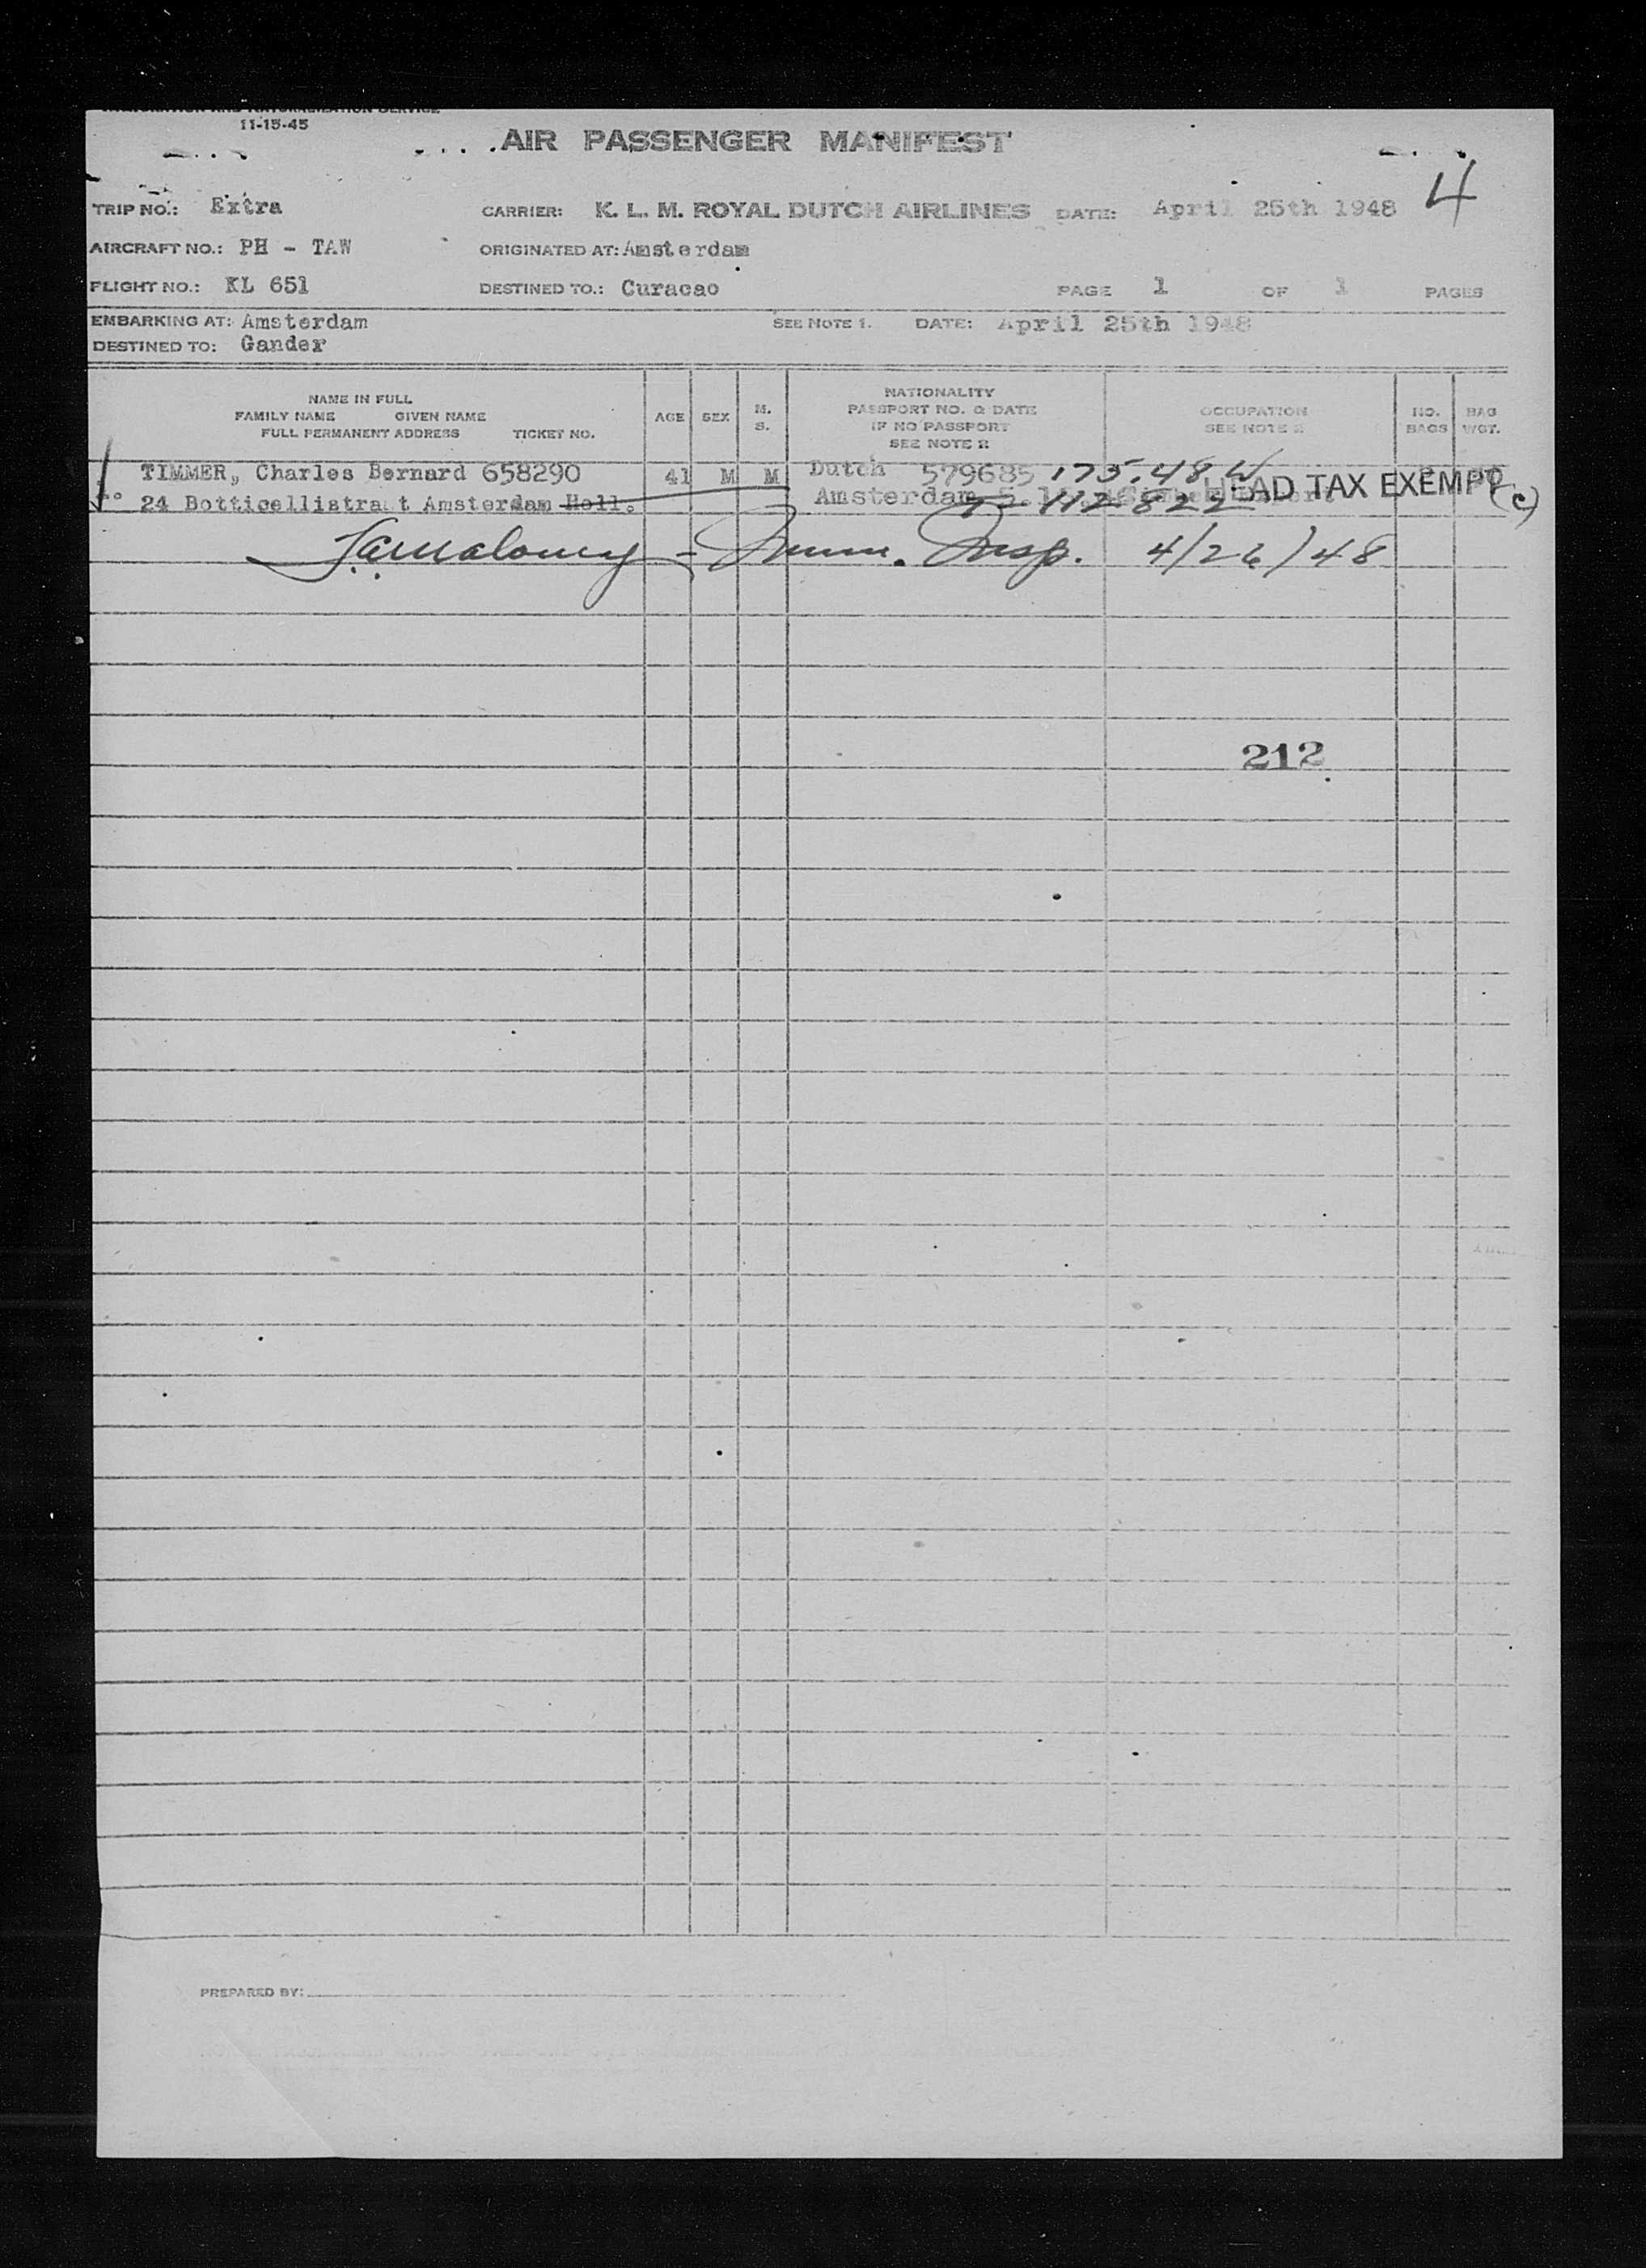 IMMIGRATION AND NATURALIZATION SERVICE
11-15-45
AIR PASSENGER MANIFEST
4
TRIP NO.: Extra CARRIER: K. L. M. ROYAL DUTCH AIRLINES DATE: April 25th 1948
AIRCRAFT NO.: PH - TAW ORIGINATED AT: Amsterdam
FLIGHT NO.: KL 651 DESTINED TO.: Curacao PAGE 1 OF 1 PAGES
EMBARKING AT: Amsterdam SEE NOTE 1. DATE: April 25th 1948
DESTINED TO: Gander
NAME IN FULL
FAMILY NAME GIVEN NAME
FULL PERMANENT ADDRESS TICKET NO.
AGE SEX M. S.
NATIONALITY
PASSPORT NO. & DATE
IF NO PASSPORT
SEE NOTE 2
OCCUPATION
SEE NOTE 2
NO. BAGS
BAG WGT.
TIMMER, Charles Bernard 658290 41 M M Dutch 579685
24 Botticellistraat Amsterdam Holl. Amsterdam HEAD TAX EXEMPT (c)
Maloney - Imm. Insp. 4/26/48
212
PREPARED BY: